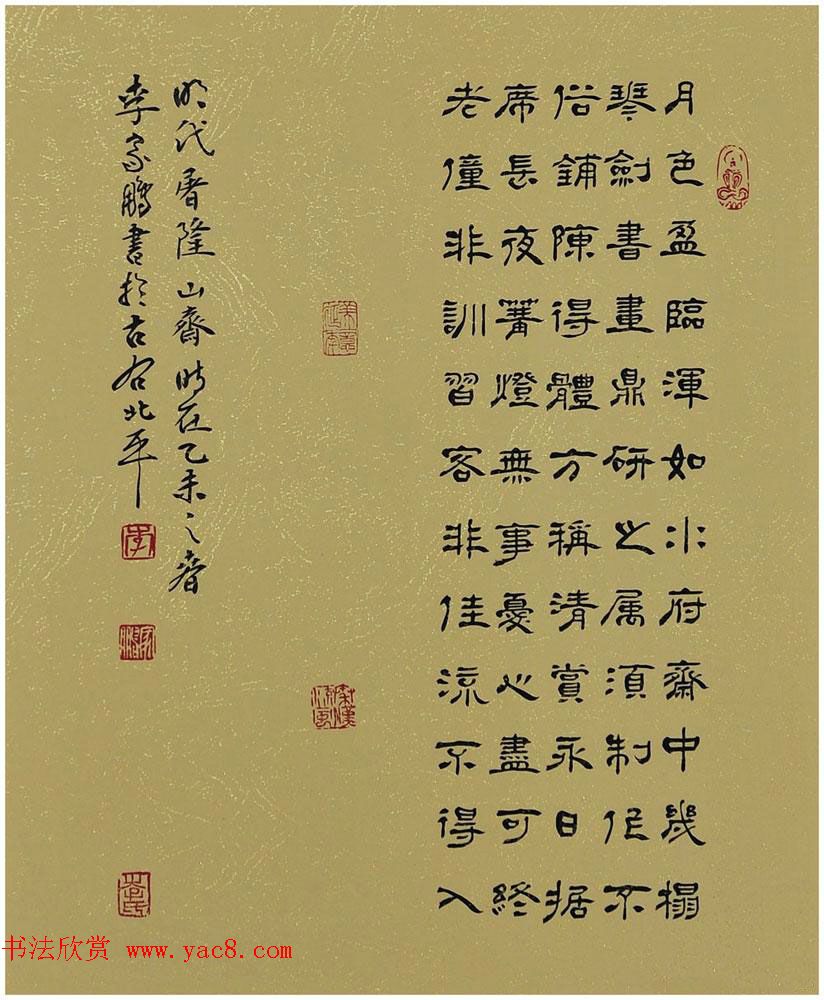 月色盈臨渾如水府齋中幾榻
琴劍書畫鼎研之属須制作不
俗鋪陳得體方稱清賞永日据
席長夜篝燈無事憂心盡可終
老僮非訓習客非佳流不得入
明代屠隆山齋时在乙未之春
李家鵬書於古右北平
李
书法欣赏 www.yac8.com